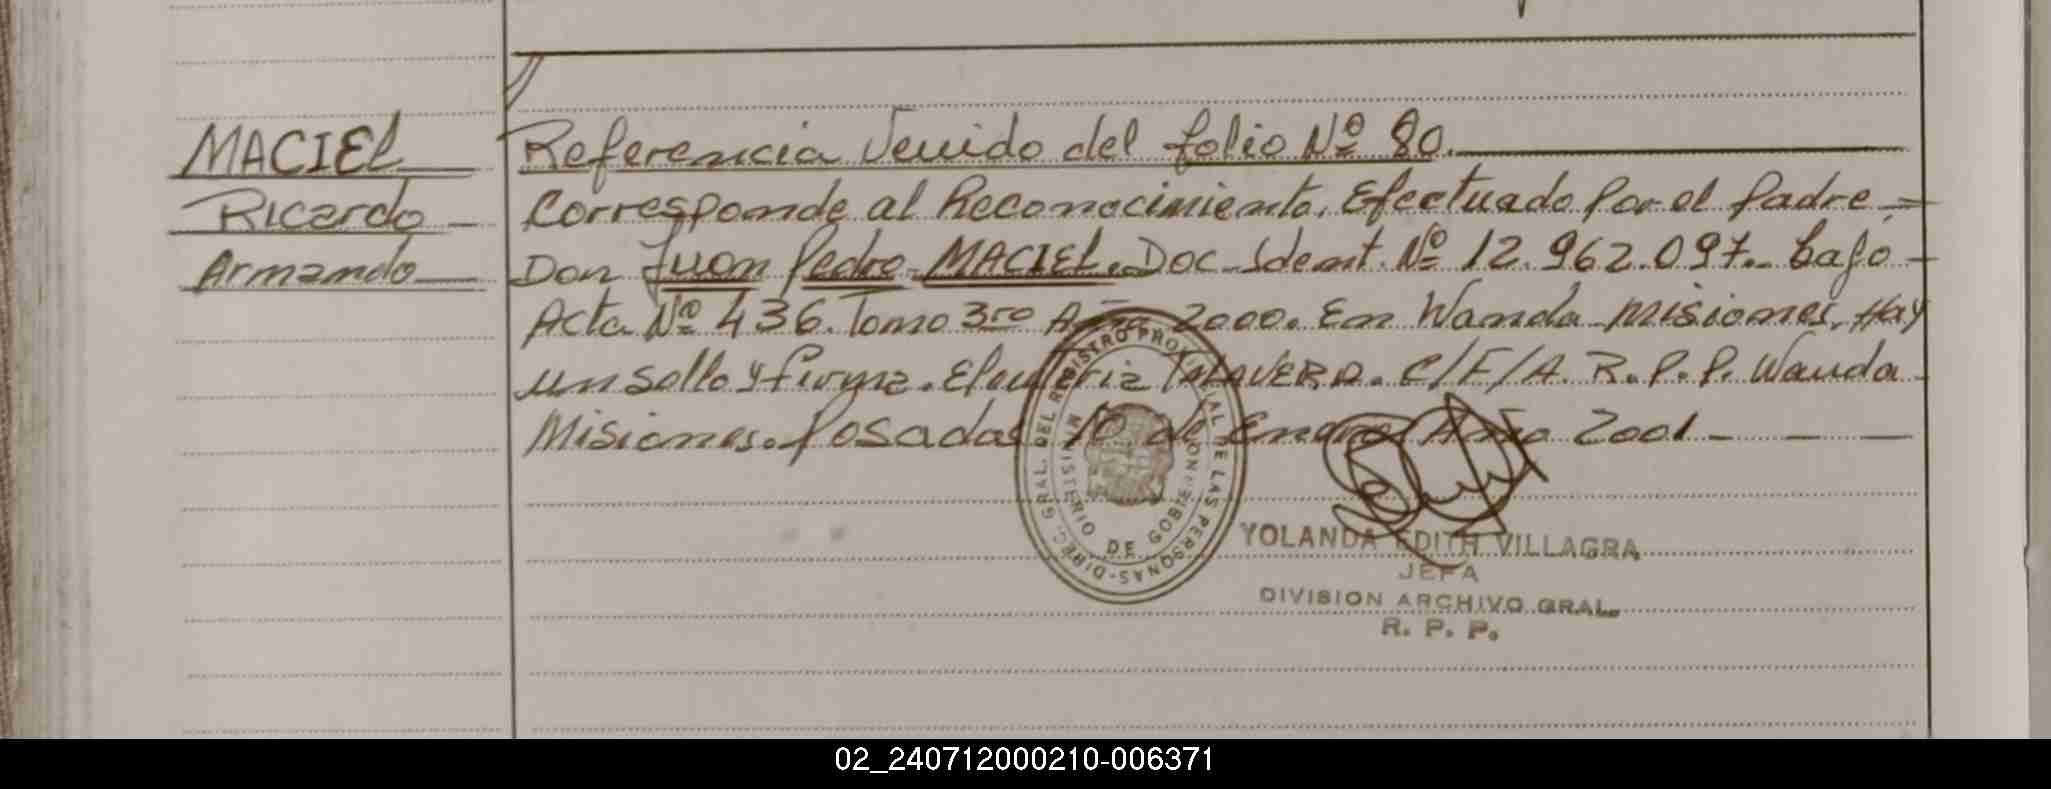 MACIEL
Ricardo
Armando
Referencia Venido del folio Nº 80.
Corresponde al Reconocimiento. Efectuado Por el Padre.=
Don Juan Pedro MACIEL. Doc. Ident. Nº 12.962.097. bajo
Acta Nº 436. Tomo 3ro Año 2000. En Wanda Misiones. Hay
un sello y firma. Eleuteria TALAVERA. C/F/A. R.P.P. Wanda
Misiones. Posadas 10 de Enero Año 2001 - - -
DIREC. GRAL. DEL REGISTRO PROVINCIAL DE LAS PERSONAS
MINISTERIO DE GOBIERNO
YOLANDA EDITH VILLAGRA
JEFA
DIVISION ARCHIVO GRAL.
R. P. P.
02_240712000210-006371